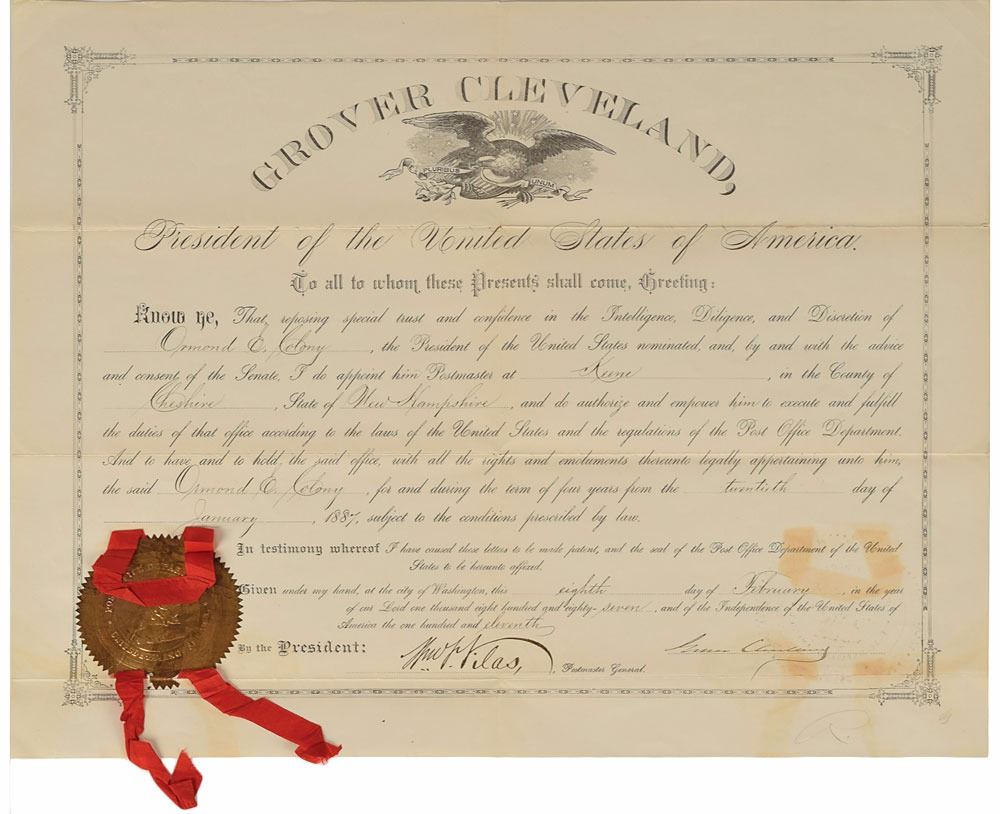 GROVER CLEVELAND,
PLURIBUS UNUM
President of the United States of America.
To all to whom these Presents shall come, Greeting:
Know ye, That, reposing special trust and confidence in the Intelligence, Diligence, and Discretion of
Ormond E. Colony, the President of the United States nominated, and, by and with the advice
and consent of the Senate, I do appoint him Postmaster at Keene, in the County of
Cheshire, State of New Hampshire, and do authorize and empower him to execute and fulfill
the duties of that office according to the laws of the United States and the regulations of the Post Office Department.
And to have and to hold, the said office, with all the rights and emoluments thereunto legally appertaining unto him,
the said Ormond E. Colony, for and during the term of four years from the twentieth day of
January, 1887, subject to the conditions prescribed by law.
In testimony whereof I have caused these letters to be made patent, and the seal of the Post Office Department of the United
States to be hereunto affixed.
Given under my hand, at the city of Washington, this eighth day of February, in the year
of our Lord one thousand eight hundred and eighty-seven, and of the Independence of the United States of
America the one hundred and eleventh
By the President: Wm F. Vilas, Postmaster General. Grover Cleveland
R.